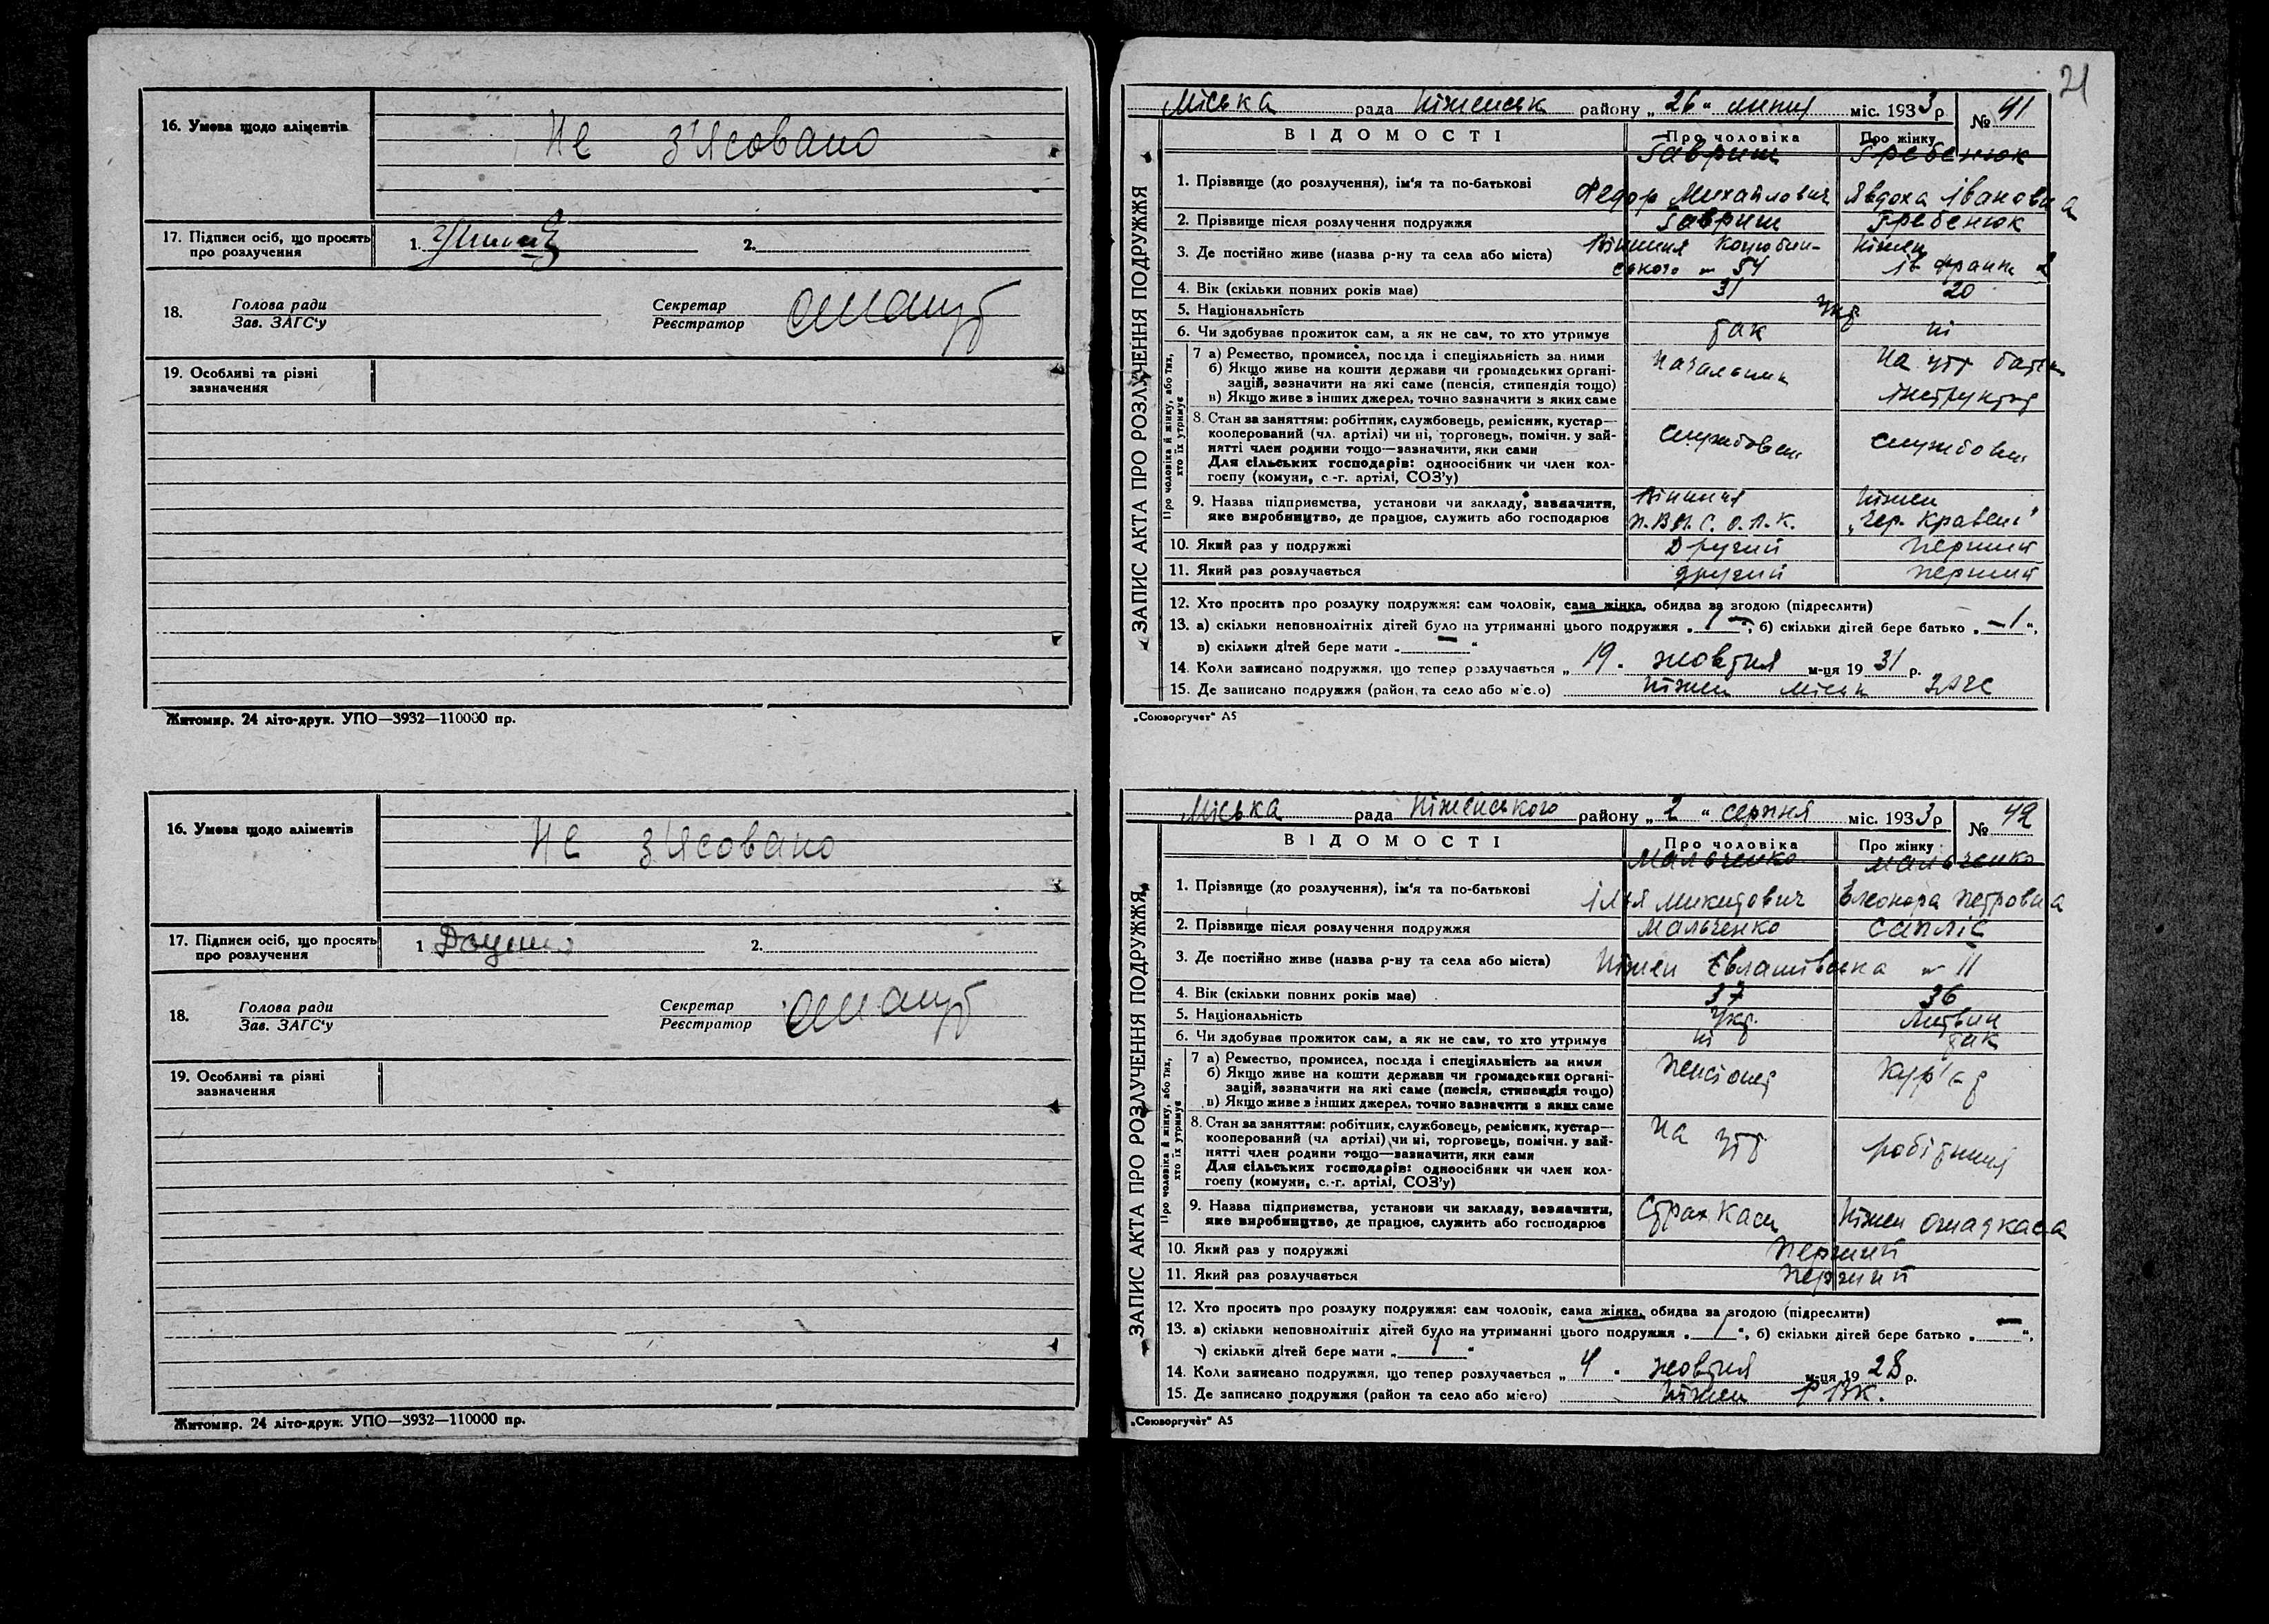 16. Умова щодо аліментів
Не з'ясовано
17. Підписи осіб, що просять
про розлучення
1.
2.
18.
Голова ради
Зав. ЗАГС'у
Секретар
Реєстратор
19. Особливі та різні
зазначення
Житомир. 24 літо-друк. УПО—3932—110000 пр.
16. Умова щодо аліментів
Не з'ясовано
17. Підписи осіб, що просять
про розлучення
1
2.
18.
Голова ради
Зав. ЗАГС'у
Секретар
Реєстратор
19. Особливі та різні
зазначення
Житомир. 24 літо-друк. УПО—3932—110000 пр.
21
Міська рада Ніженськ району „26" липня міс. 1933 р № 41
ЗАПИС АКТА ПРО РОЗЛУЧЕННЯ ПОДРУЖЖЯ
ВІДОМОСТІ Про чоловіка Про жінку
Гавриш Гребенюк
1. Прізвище (до розлучення), ім'я та по-батькові Федор Михайлович Явдоха Івановна
2. Прізвище після розлучення подружжя Гавриш Гребенюк
3. Де постійно живе (назва р-ну та села або міста) Вінниця Коцюбин- Ніжен
ського 54 Ів Франк 2
4. Вік (скільки повних років має) 31 20
5. Національність Укр
6. Чи здобував прожиток сам, а як не сам, то хто утримує так ні
Про чоловіка й жінку, або тих,
хто їх утримує
7 а) Ремество, промисел, посада і спеціяльність за ними
б) Якщо живе на кошти держави чи громадських органі-
зацій, зазначити на які саме (пенсія, стипендія тощо)
в) Якщо живе з інших джерел, точно зазначити з яких саме
Начальник
На утр батьк
інструктор
8. Стан за заняттям: робітник, службовець, ремісник, кустар—
кооперований (чл. артілі) чи ні, торговець, помічн. у зай-
нятті член родини тощо—зазначити, яки сами
Для сільських господарів: одноосібник чи член кол-
госпу (комуни, с.-г. артілі, СОЗ'у)
службовец службовец
9. Назва підприємства, установи чи закладу, зазначити,
яке виробництво, де працює, служить або господарює
Вінниця Ніжен
„Чер. Кравець"
10. Який раз у подружжі Другий Перший
11. Який раз розлучається другий перший
12. Хто просить про розлуку подружжя: сам чоловік, сама жінка, обидва за згодою (підреслити)
13. а) скільки неповнолітніх дітей було на утриманні цього подружжя „1", б) скільки дітей бере батько „—1",
в) скільки дітей бере мати „—"
14. Коли записано подружжя, що тепер розлучається „19. жовтня м-ця 1931 р.
15. Де записано подружжя (район, та село або місто) Ніжен міськ ЗАГС
„Союзоргучет" А5
Міська рада Ніженського району „2" серпня міс. 1933 р № 42
ЗАПИС АКТА ПРО РОЗЛУЧЕННЯ ПОДРУЖЖЯ
ВІДОМОСТІ Про чоловіка Про жінку
Мальченко Мальченко
1. Прізвище (до розлучення), ім'я та по-батькові Ілля Микитович Елеонора Петровна
2. Прізвище після розлучення подружжя Мальченко Сапліс
3. Де постійно живе (назва р-ну та села або міста) Ніжен Євлашівська 11
4. Вік (скільки повних років має) 37 36
5. Національність Укр. Литвин
6. Чи здобував прожиток сам, а як не сам, то хто утримує ні так
Про чоловіка й жінку, або тих,
хто їх утримує
7 а) Ремество, промисел, посада і спеціяльність за ними
б) Якщо живе на кошти держави чи громадських органі-
зацій, зазначити на які саме (пенсія, стипендія тощо)
в) Якщо живе з інших джерел, точно зазначити з яких саме
Пенсіонер Кур'єр
8. Стан за заняттям: робітник, службовець, ремісник, кустар—
кооперований (чл артілі) чи ні, торговець, помічн. у зай-
нятті член родини тощо—зазначити, яки сами
Для сільських господарів: одноосібник чи член кол-
госпу (комуни, с.-г. артілі, СОЗ'у)
На утр робітниця
9. Назва підприємства, установи чи закладу, зазначити,
яке виробництво, де працює, служить або господарює
Страх Каси Ніжен ощадкаса
10. Який раз у подружжі Перший
11. Який раз розлучається Перший
12. Хто просить про розлуку подружжя: сам чоловік, сама жінка, обидва за згодою (підреслити)
13. а) скільки неповнолітніх дітей було на утриманні цього подружжя „1", б) скільки дітей бере батько „—",
в) скільки дітей бере мати „1"
14. Коли записано подружжя, що тепер розлучається „4. жовтня м-ця 1928 р.
15. Де записано подружжя (район та село або місто) Ніжен РВК.
„Союзоргучет" А5